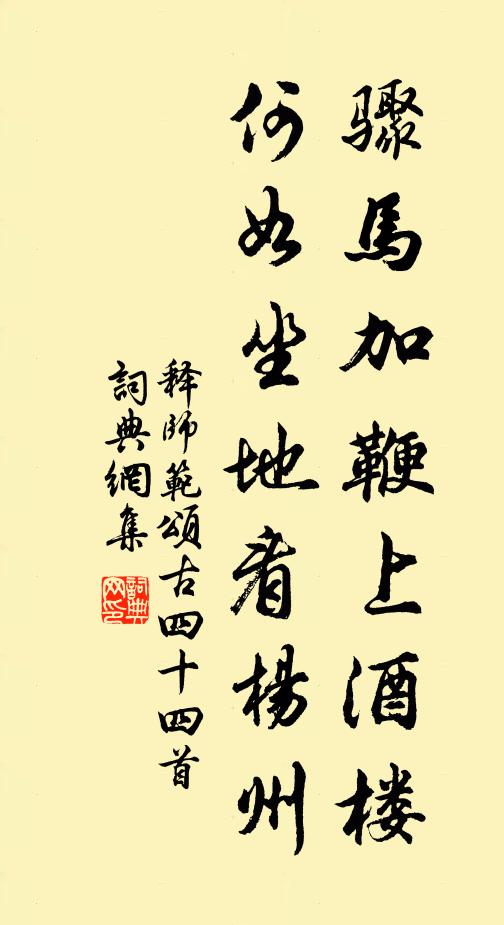 骤馬加鞭上酒楼
何如坐地看楊州
释師範頌古四十四首
詞典網集
詞典網印